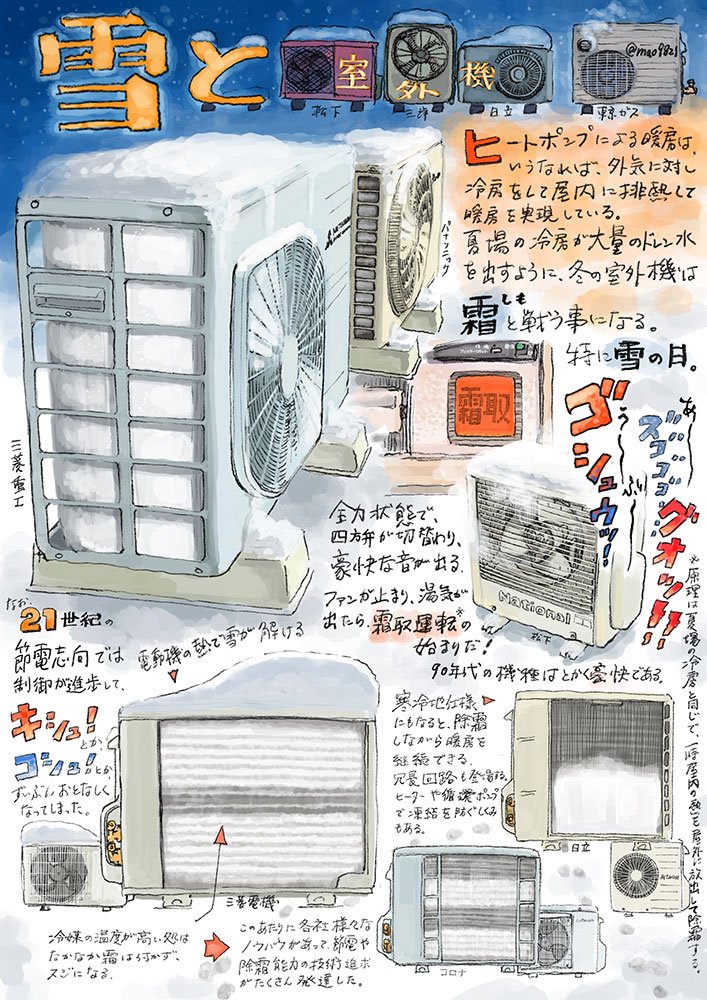 雪と室外機
松下
三洋
日立
東京ガス
@mao9821
ヒートポンプによる暖房は、
いうなれば、外気に対し
冷房をして屋内に排熱して
暖房を実現している。
夏場の冷房が大量のドレン水
を出すように、冬の室外機は
霜と戦う事になる。
しも
特に雪の日。
パナソニック
三菱重工
霜取
あ〜〜
う〜〜
ゴシュウッ!
ズゴゴゴ
グオッ!!
全力状態で、
四方弁が切替わり、
豪快な音が出る。
ファンが止まり、湯気が
出たら、霜取運転※の
始まりだ!
National
松下
90年代の機種はとかく豪快である。
※原理は夏場の冷房と同じで、一時屋内の熱を屋外に放出して除霜する。
なお、
21世紀の
節電志向では
制御が進歩して、
キシュ!
とか、
コシュ!とか
ずいぶんおとなしく
なってしまった。
電動機の熱で雪が解ける
三菱電機
冷媒の温度が高い処は
なかなか霜は付かず、
スジになる。
このあたりに各社様々な
ノウハウがあって、節電や
除霜能力の技術進歩
がたくさん発達した。
寒冷地仕様
にもなると、除霜
しながら暖房を
継続できる
冗長回路も登場する。
ヒーターや循環ポンプ
で凍結を防ぐしくみ
もある。
日立
コロナ